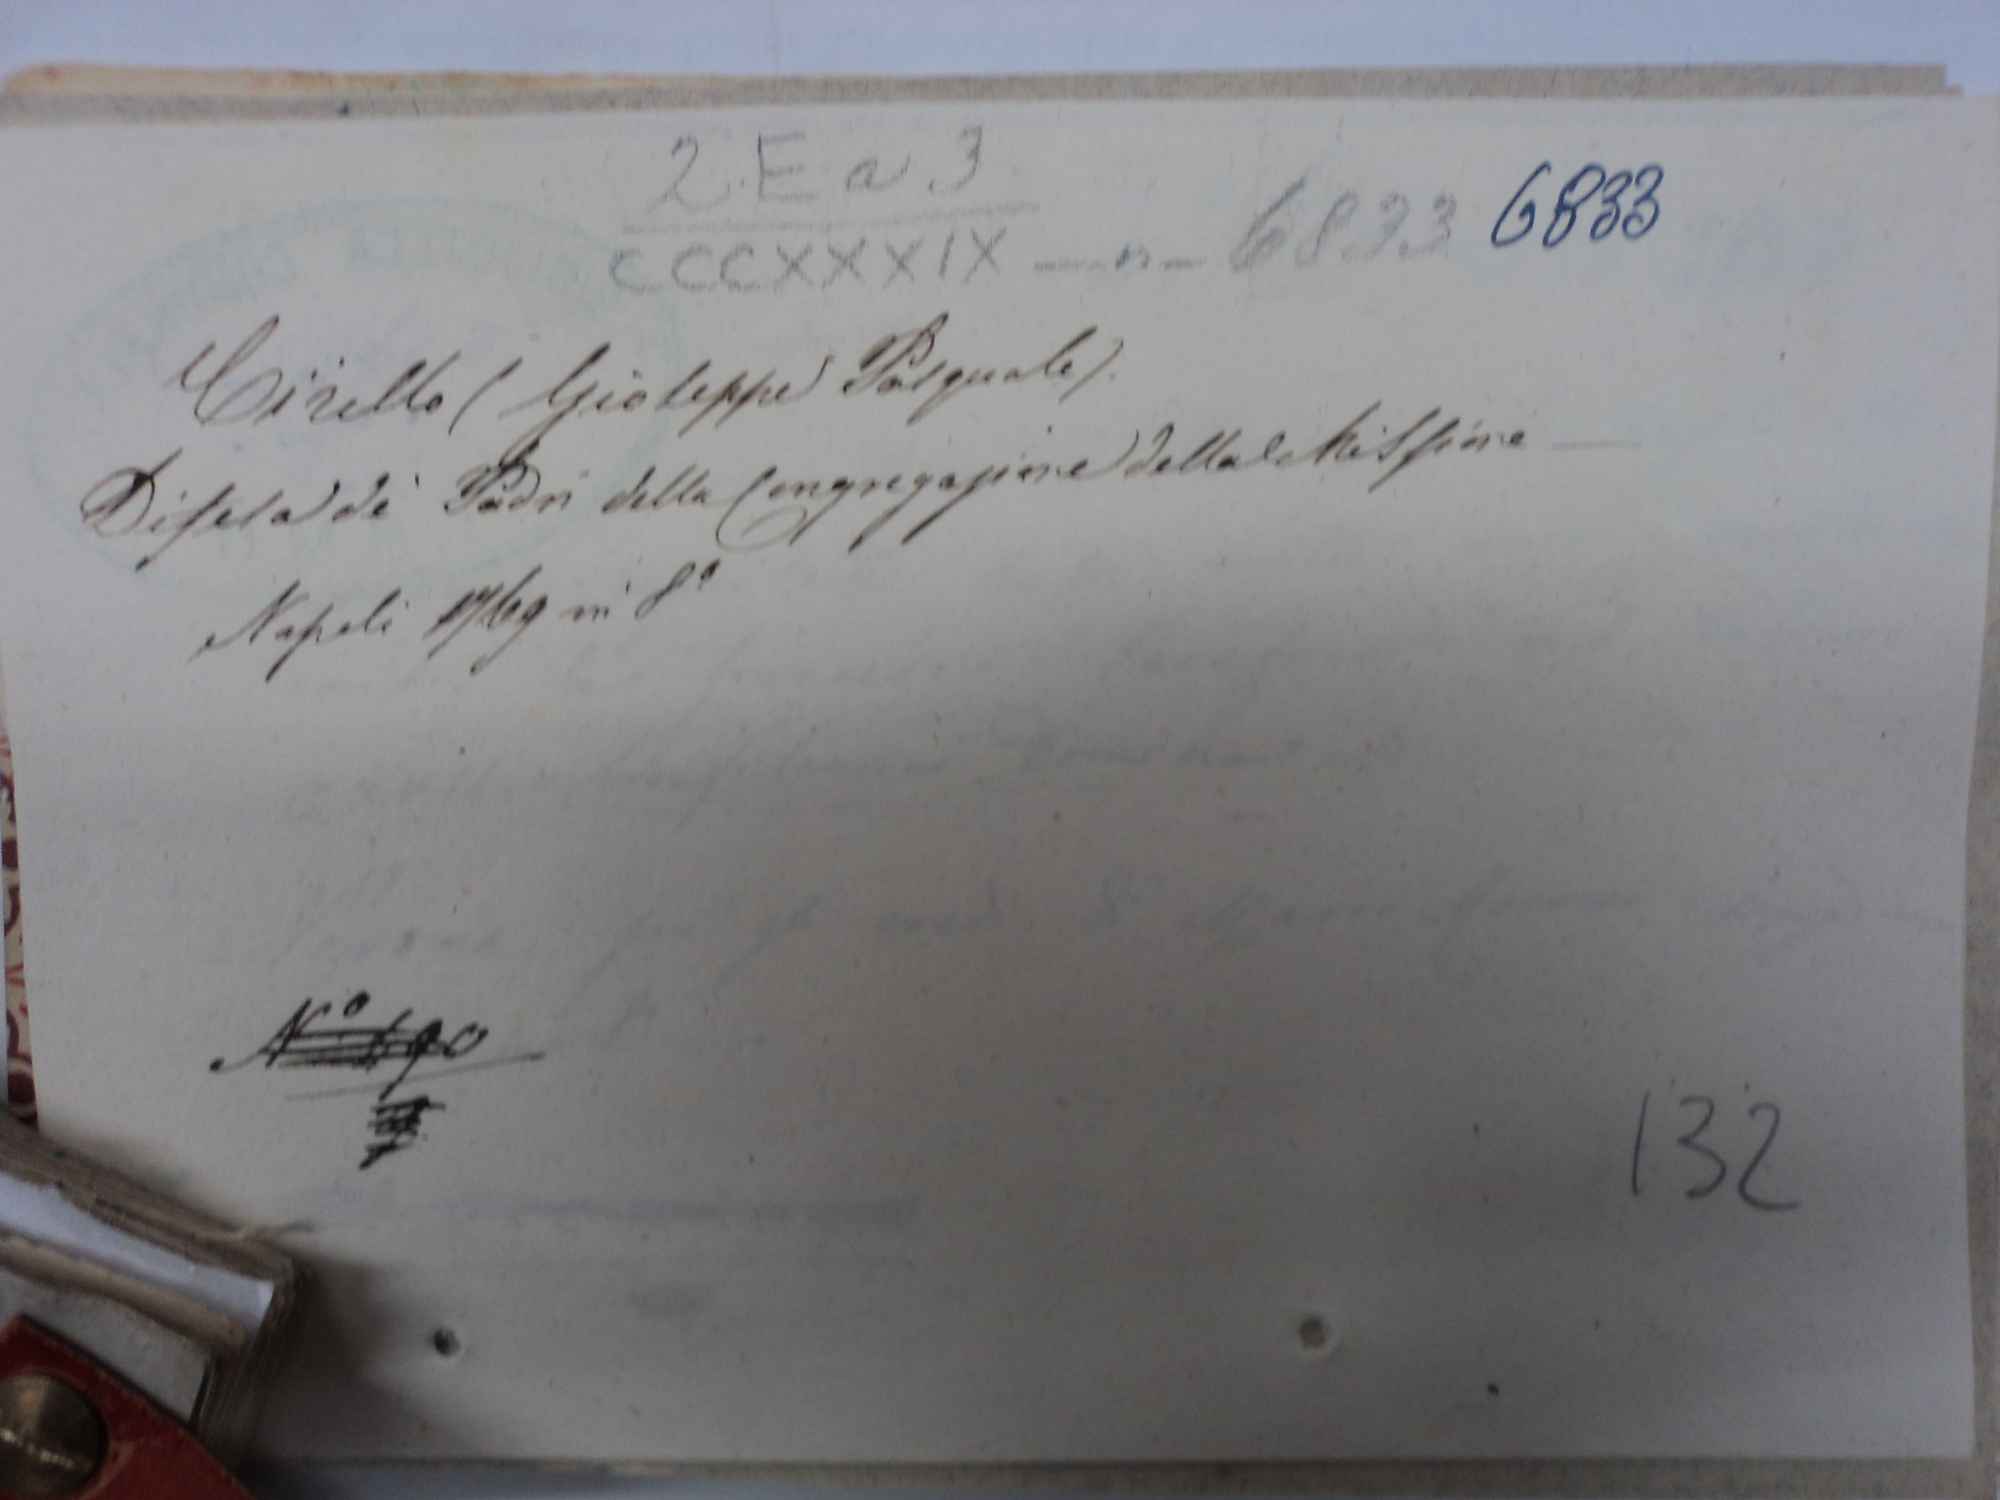 2 E a 3
CCCXXXIX — n — 6833 6833
Cirello (Giuseppe Pasquale).
Difesa de' Padri della Congregazione della Missione —
Napoli 1769 in 8°
N° 190
132